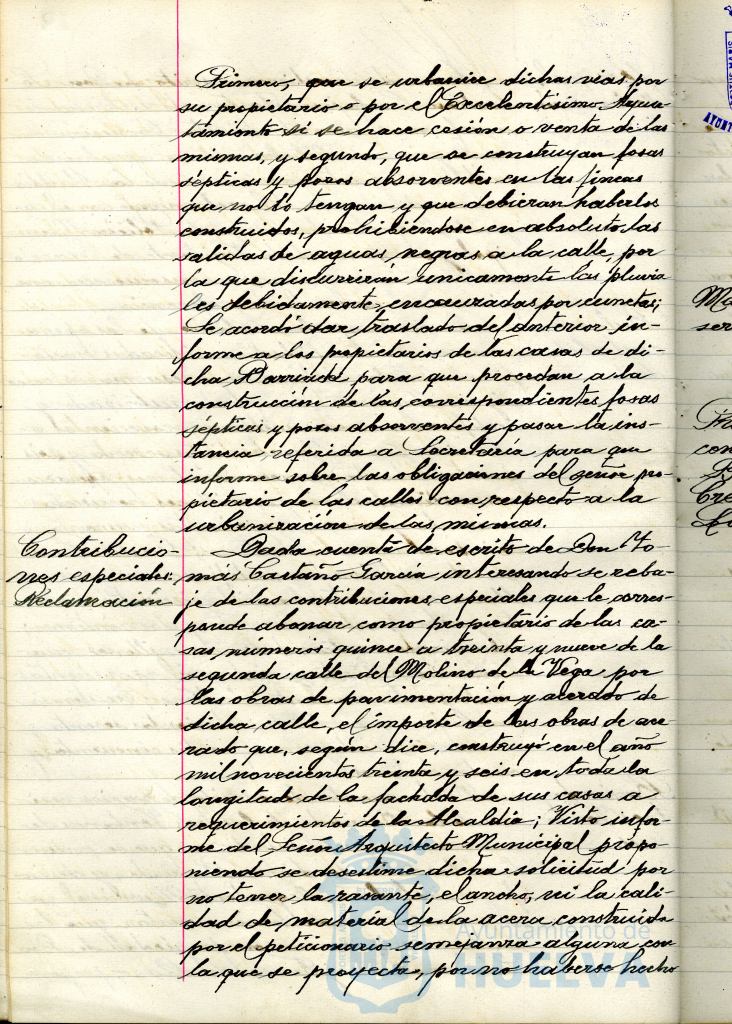 Primero, que se urbanice dichas vias por
su propietario o por el Excelentísimo Ayun-
tamiento si se hace cesión o venta de las
mismas, y segundo, que se construyan fosas
sépticas y pozos absorventes en las fincas
que no lo tengan y que debieran haberlos
construidos, prohibiendose en absoluto las
salidas de aguas negras a la calle, por
la que discurrirán unicamente las pluvia
les debidamente encauzadas por cunetas;
Se acordó dar traslado del anterior in-
forme a los propietarios de las casas de di-
cha Barriada para que procedan a la
construcción de las correspondientes fosas
sépticas y pozos absorventes y pasar la ins-
tancia referida a Secretaría para que
informe sobre las obligaciones del señor pro-
pietario de las calles con respecto a la
urbanización de las mismas.
Contribucio-
nes especiales.
Reclamación
Dada cuenta de escrito de Don To-
más Castaño García interesando se reba-
je de las contribuciones especiales que le corres-
ponde abonar como propietario de las ca-
sas números quince a treinta y nueve de la
segunda calle del Molino de la Vega por
las obras de pavimentación y acerado de
dicha calle, el importe de las obras de ace-
rado que, según dice, construyó en el año
mil novecientos treinta y seis en toda la
longitud de la fachada de sus casas a
requerimientos de la Alcaldía; Visto infor-
me del Señor Arquitecto Municipal propo-
niendo se desestime dicha solicitud por
no tener la rasante, el ancho, ni la cali-
dad de material de la acera construida
por el peticionario semejanza alguna con
la que se proyecta, por no haberse hecho
Ayuntamiento de
HUELVA